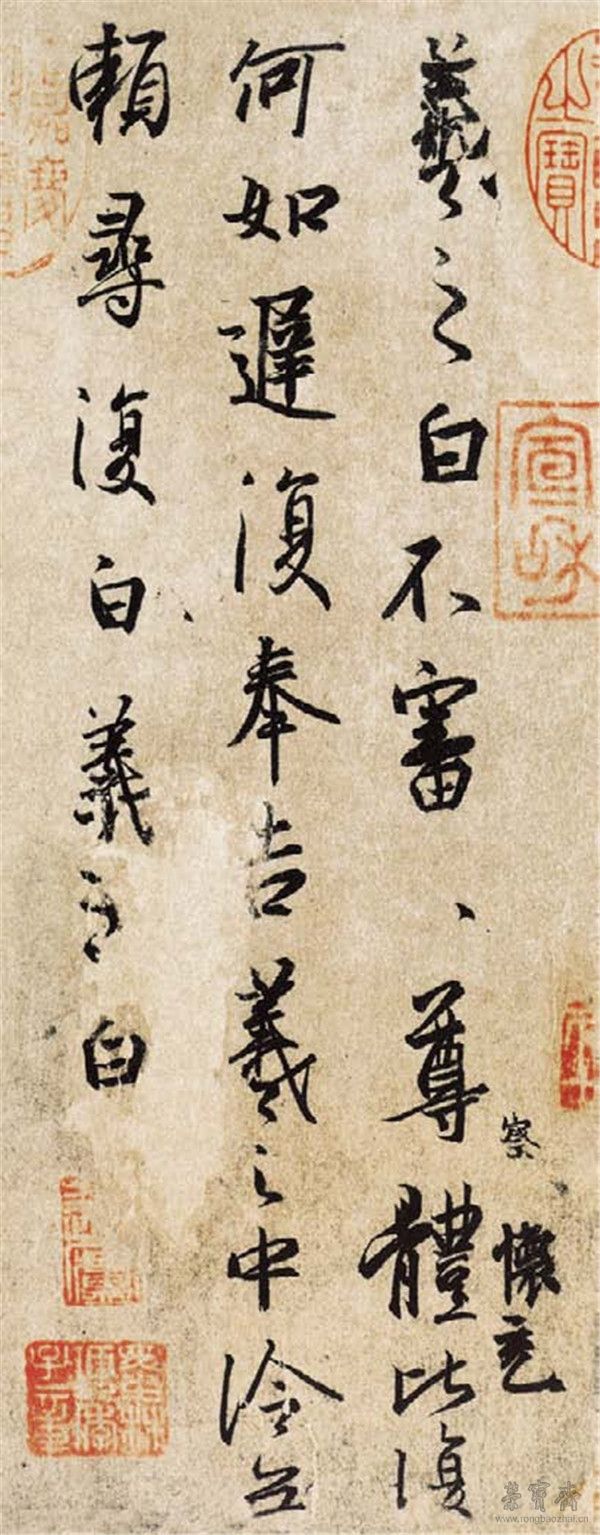 之寶
宣和
察
懷充
羲之白不審、尊體比復
何如遲復奉告羲之中冷無
賴尋復白羲之白
嘉慶
榮寶齋
www.rongbaozhai.cn